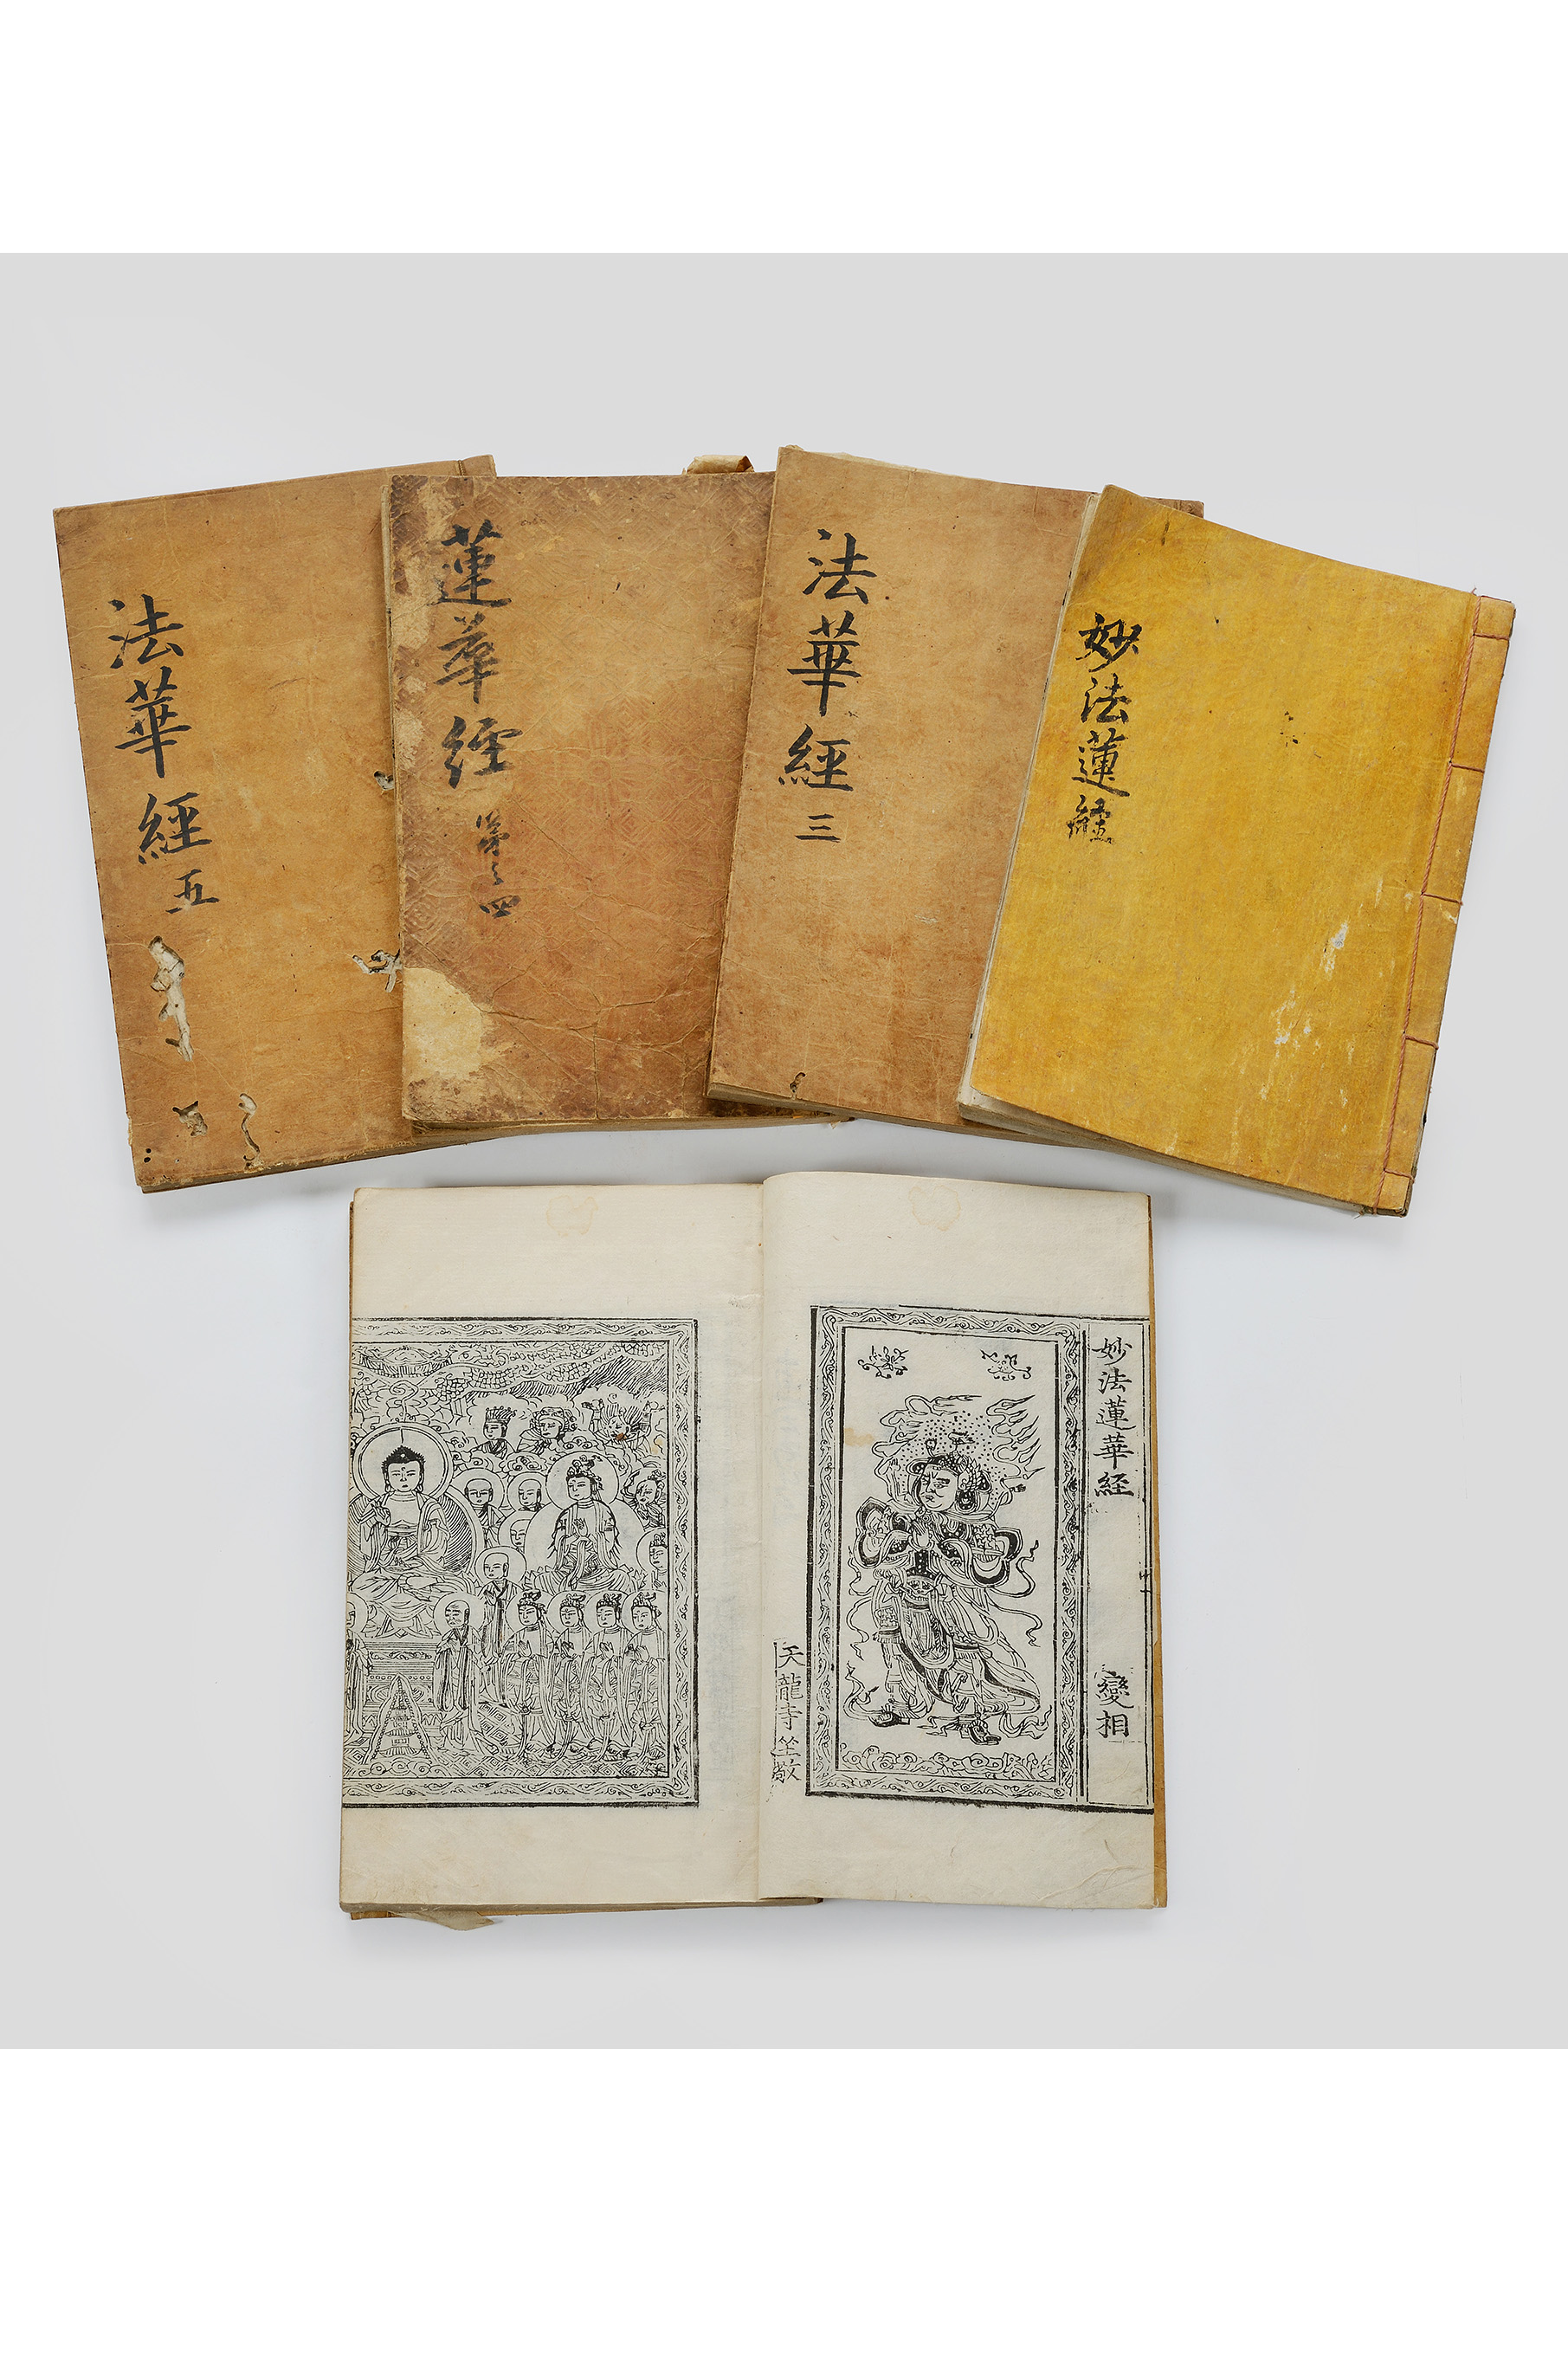 妙法蓮經
法華經 三
蓮華經 第之四
法華經 五
妙法蓮華経 變相
天龍寺